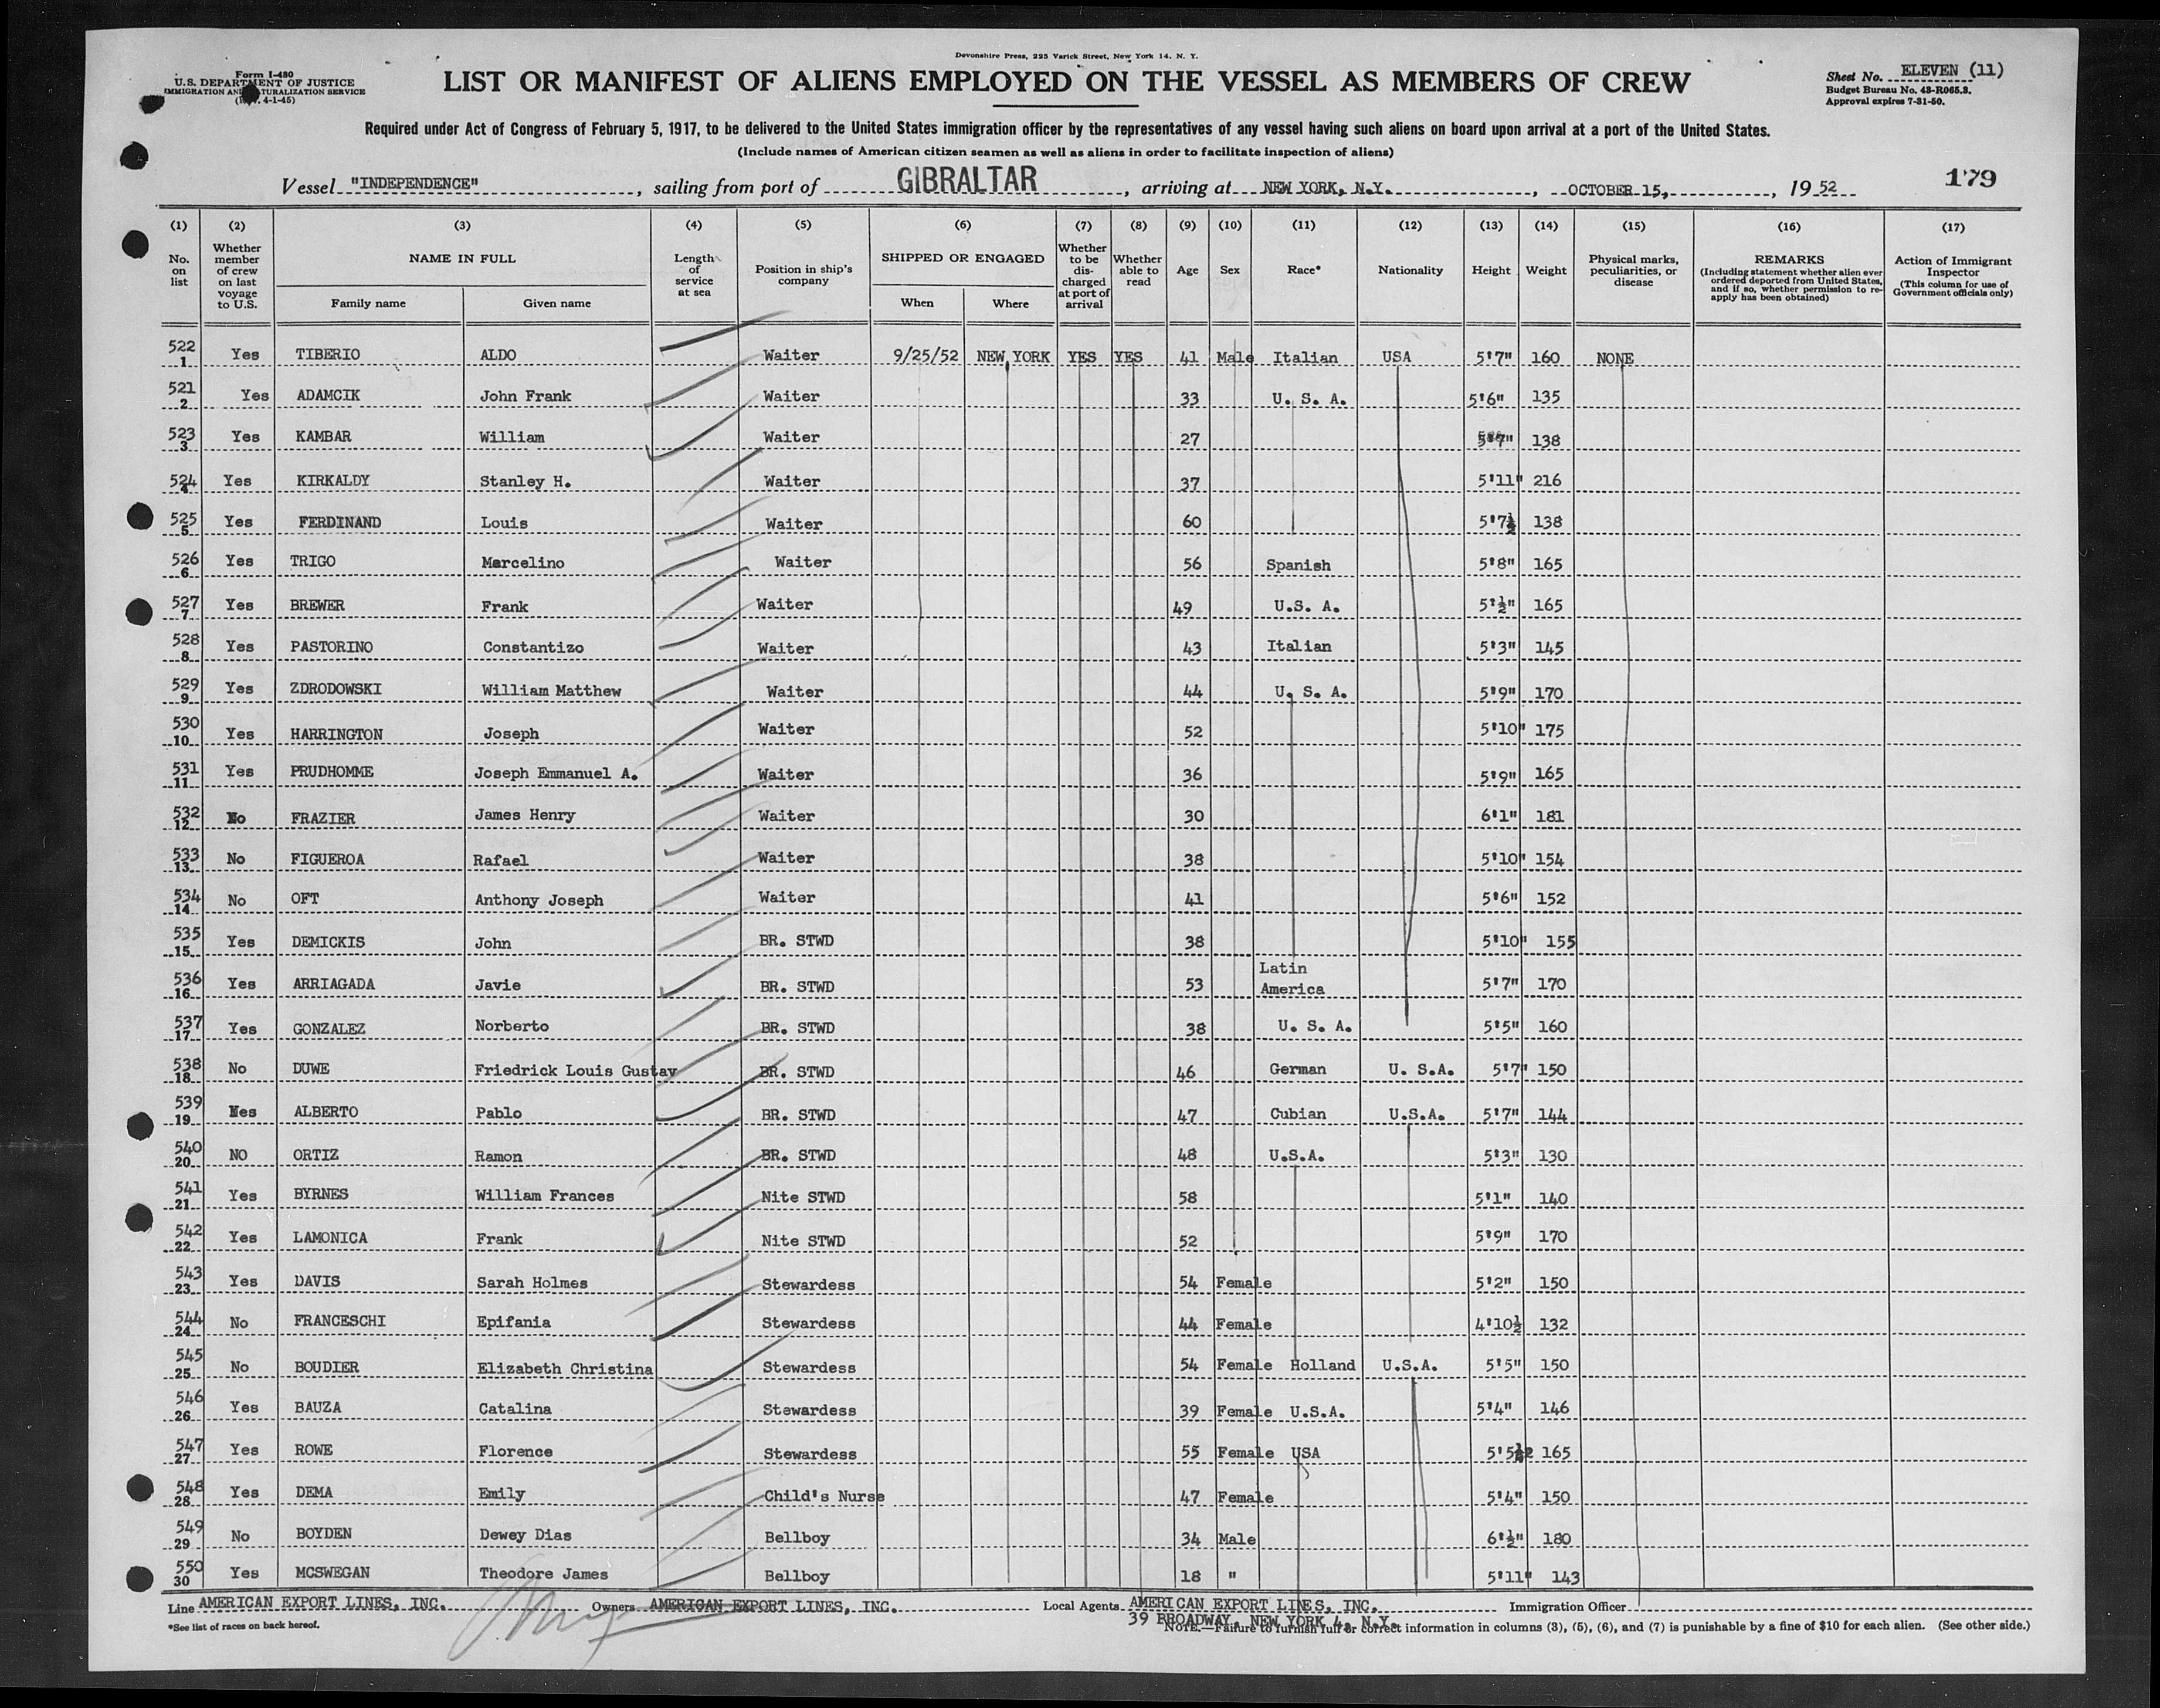 Devonshire Press, 225 Varick Street, New York 14, N. Y.
Form I-480
U.S. DEPARTMENT OF JUSTICE
IMMIGRATION AND NATURALIZATION SERVICE
4-1-45)
LIST OR MANIFEST OF ALIENS EMPLOYED ON THE VESSEL AS MEMBERS OF CREW
Sheet No. ELEVEN (11)
Budget Bureau No. 43-R065.3.
Approval expires 7-31-50.
Required under Act of Congress of February 5, 1917, to be delivered to the United States immigration officer by the representatives of any vessel having such aliens on board upon arrival at a port of the United States.
(Include names of American citizen seamen as well as aliens in order to facilitate inspection of aliens)
Vessel "INDEPENDENCE", sailing from port of GIBRALTAR, arriving at NEW YORK, N.Y., OCTOBER 15,, 1952
179
(1) No. on list
(2) Whether member of crew on last voyage to U.S.
(3) NAME IN FULL Family name Given name
(4) Length of service at sea
(5) Position in ship's company
(6) SHIPPED OR ENGAGED When Where
(7) Whether to be discharged at port of arrival
(8) Whether able to read
(9) Age
(10) Sex
(11) Race*
(12) Nationality
(13) Height
(14) Weight
(15) Physical marks, peculiarities, or disease
(16) REMARKS (Including statement whether alien ever ordered deported from United States, and if so, whether permission to reapply has been obtained)
(17) Action of Immigrant Inspector (This column for use of Government officials only)
522 1 Yes TIBERIO ALDO Waiter 9/25/52 NEW YORK YES YES 41 Male Italian USA 5'7" 160 NONE
521 2 Yes ADAMCIK John Frank Waiter 33 U. S. A. 5'6" 135
523 3 Yes KAMBAR William Waiter 27 5'7" 138
524 4 Yes KIRKALDY Stanley H. Waiter 37 5'11" 216
525 5 Yes FERDINAND Louis Waiter 60 5'7½ 138
526 6 Yes TRIGO Marcelino Waiter 56 Spanish 5'8" 165
527 7 Yes BREWER Frank Waiter 49 U.S. A. 5'½" 165
528 8 Yes PASTORINO Constantizo Waiter 43 Italian 5'3" 145
529 9 Yes ZDRODOWSKI William Matthew Waiter 44 U. S. A. 5'9" 170
530 10 Yes HARRINGTON Joseph Waiter 52 5'10" 175
531 11 Yes PRUDHOMME Joseph Emmanuel A. Waiter 36 5'9" 165
532 12 No FRAZIER James Henry Waiter 30 6'1" 181
533 13 No FIGUEROA Rafael Waiter 38 5'10" 154
534 14 No OFT Anthony Joseph Waiter 41 5'6" 152
535 15 Yes DEMICKIS John BR. STWD 38 5'10" 155
536 16 Yes ARRIAGADA Javie BR. STWD 53 Latin America 5'7" 170
537 17 Yes GONZALEZ Norberto BR. STWD 38 U. S. A. 5'5" 160
538 18 No DUWE Friedrick Louis Gustav BR. STWD 46 German U. S.A. 5'7" 150
539 19 Yes ALBERTO Pablo BR. STWD 47 Cubian U.S.A. 5'7" 144
540 20 NO ORTIZ Ramon BR. STWD 48 U.S.A. 5'3" 130
541 21 Yes BYRNES William Frances Nite STWD 58 5'1" 140
542 22 Yes LAMONICA Frank Nite STWD 52 5'9" 170
543 23 Yes DAVIS Sarah Holmes Stewardess 54 Female 5'2" 150
544 24 No FRANCESCHI Epifania Stewardess 44 Female 4'10½ 132
545 25 No BOUDIER Elizabeth Christina Stewardess 54 Female Holland U.S.A. 5'5" 150
546 26 Yes BAUZA Catalina Stewardess 39 Female U.S.A. 5'4" 146
547 27 Yes ROWE Florence Stewardess 55 Female USA 5'5½ 165
548 28 Yes DEMA Emily Child's Nurse 47 Female 5'4" 150
549 29 No BOYDEN Dewey Dias Bellboy 34 Male 6'½" 180
550 30 Yes MCSWEGAN Theodore James Bellboy 18 " 5'11" 143
Line AMERICAN EXPORT LINES, INC. Owners AMERICAN EXPORT LINES, INC. Local Agents AMERICAN EXPORT LINES, INC. Immigration Officer
39 BROADWAY, NEW YORK 4, N.Y.
*See list of races on back hereof.
NOTE.—Failure to furnish full or correct information in columns (3), (5), (6), and (7) is punishable by a fine of $10 for each alien. (See other side.)